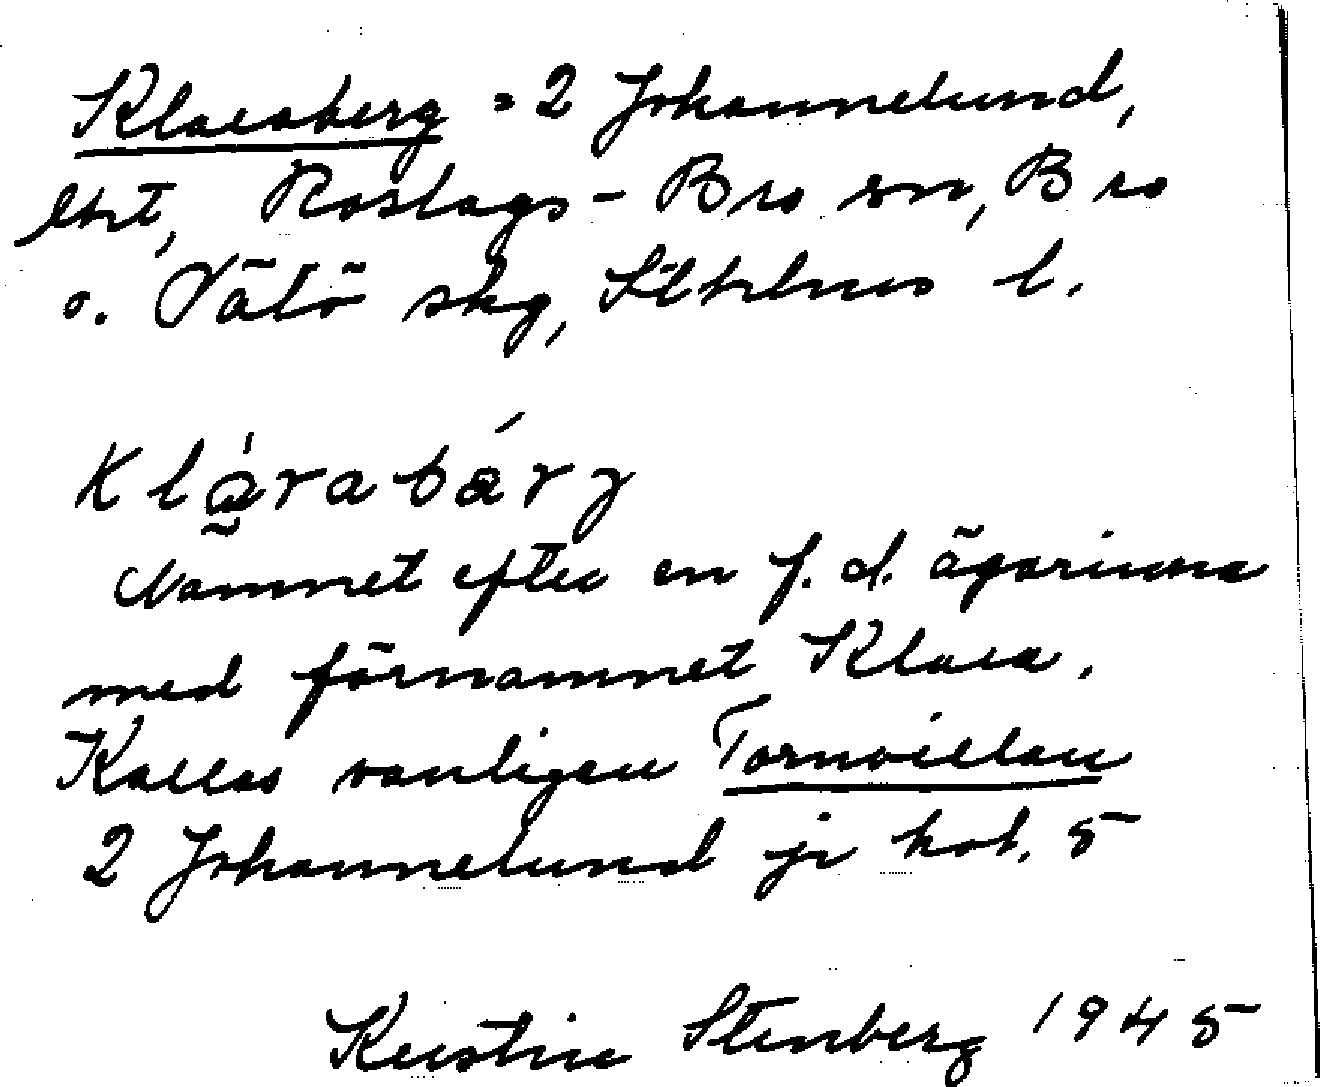 Klaraberg = 2 Johannelund,
lht, Roslags-Bro sn, Bro
o. Vätö skg, Sthlms l.
Klárabárg
Namnet efter en f.d. ägarinna
med förnamnet Klara.
Kallas vanligen Tornvillan
2 Johannelund jr kat. 5
Kerstin Stenberg 1945